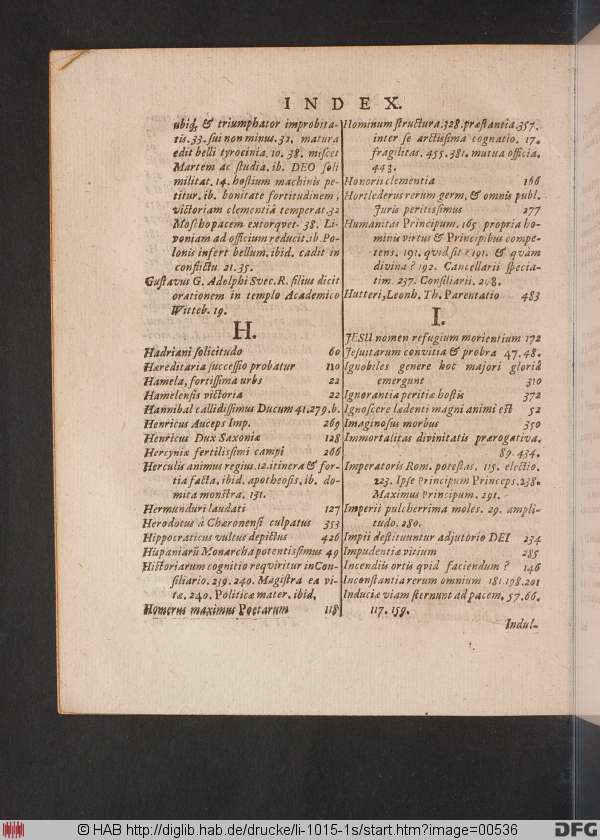 INDEX.
ubiq; & triumphator improbita-
tis. 33. sui non minus. 32. matura
edit belli tyrocinia. 10. 38. miscet
Martem ac studia. ib. DEO soli
militat. 14. hostium machinis pe-
titur. ib. bonitate fortitudinem,
victoriam clementiâ temperat. 32
Moscho pacem extorqvet. 38. Li-
voniam ad officium reducit. ib. Po-
lonis infert bellum. ibid. cadit in
conflictu. 21. 35.
Gustavus G. Adolphi Svec. R. filius dicit
orationem in templo Academico
Witteb. 19.
H.
Hadriani solicitudo 60
Hæreditaria successio probatur 110
Hamela, fortissima urbs 22
Hamelensis victoria 22
Hannibal callidissimus Ducum 41. 279. b.
Henricus Auceps Imp. 269
Henricus Dux Saxoniæ 128
Hercyniæ fertilissimi campi 266
Herculis animus regius. 12. itinera & for-
tia facta. ibid. apotheosis. ib. do-
mita monstra. 131.
Hermunduri laudati 127
Herodotus à Charonensi culpatus 353
Hippocraticus vuleus depictus 426
Hispaniarū Monarcha potentissimus 49
Historiarum cognitio reqviritur in Con-
siliario. 239. 240. Magistra ea vi-
tæ. 240. Politicæ mater. ibid.
Homerus maximus Poetarum 118
Hominum structura. 328. præstantia. 357.
inter se arctissima cognatio. 17.
fragilitas. 455. 381. mutua officia.
443.
Honorii clementia 166
Hortlederus rerum germ. & omnis publ.
Juris peritissimus 277
Humanitas Principum. 165 propria ho-
minis virtus & Principibus compe-
tens. 191. quid sit? 191. & quàm
divina? 192. Cancellarii specia-
tim. 237. Consiliarii. 208.
Hutteri, Leonh. Th. Parentatio 483
I.
JESU nomen refugium morientium 172
Jesuitarum convitia & probra 47. 48.
Ignobiles genere hoc majori gloriâ
emergunt 310
Ignorantia peritiæ hostis 372
Ignoscere lædenti magni animi est 52
Imaginosus morbus 350
Immortalitas divinitatis prærogativa.
89. 434.
Imperatoris Rom. potestas. 115. electio.
223. Ipse Principum Princeps. 238.
Maximus Principum. 291.
Imperii pulcherrima moles. 29. ampli-
tudo. 280.
Impii destituuntur adjutorio DEI 234
Impudentia vitium 285
Incendiis ortis qvid faciendum? 146
Inconstantia rerum omnium 181. 198. 201
Induciæ viam sternunt ad pacem. 57. 66.
117. 159.
Indul-
© HAB http://diglib.hab.de/drucke/li-1015-1s/start.htm?image=00536
DFG